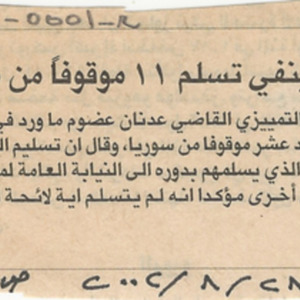 -0501-R
ينفي تسلم ١١ موقوفاً من
التمييزي القاضي عدنان عضوم ما ورد في
د عشر موقوفا من سوريا، وقال ان تسليم
الذي يسلمهم بدوره الى النيابة العامة لم
أخرى مؤكدا انه لم يتسلم اية لائحة
٢٠٠٢/٨/٢٨